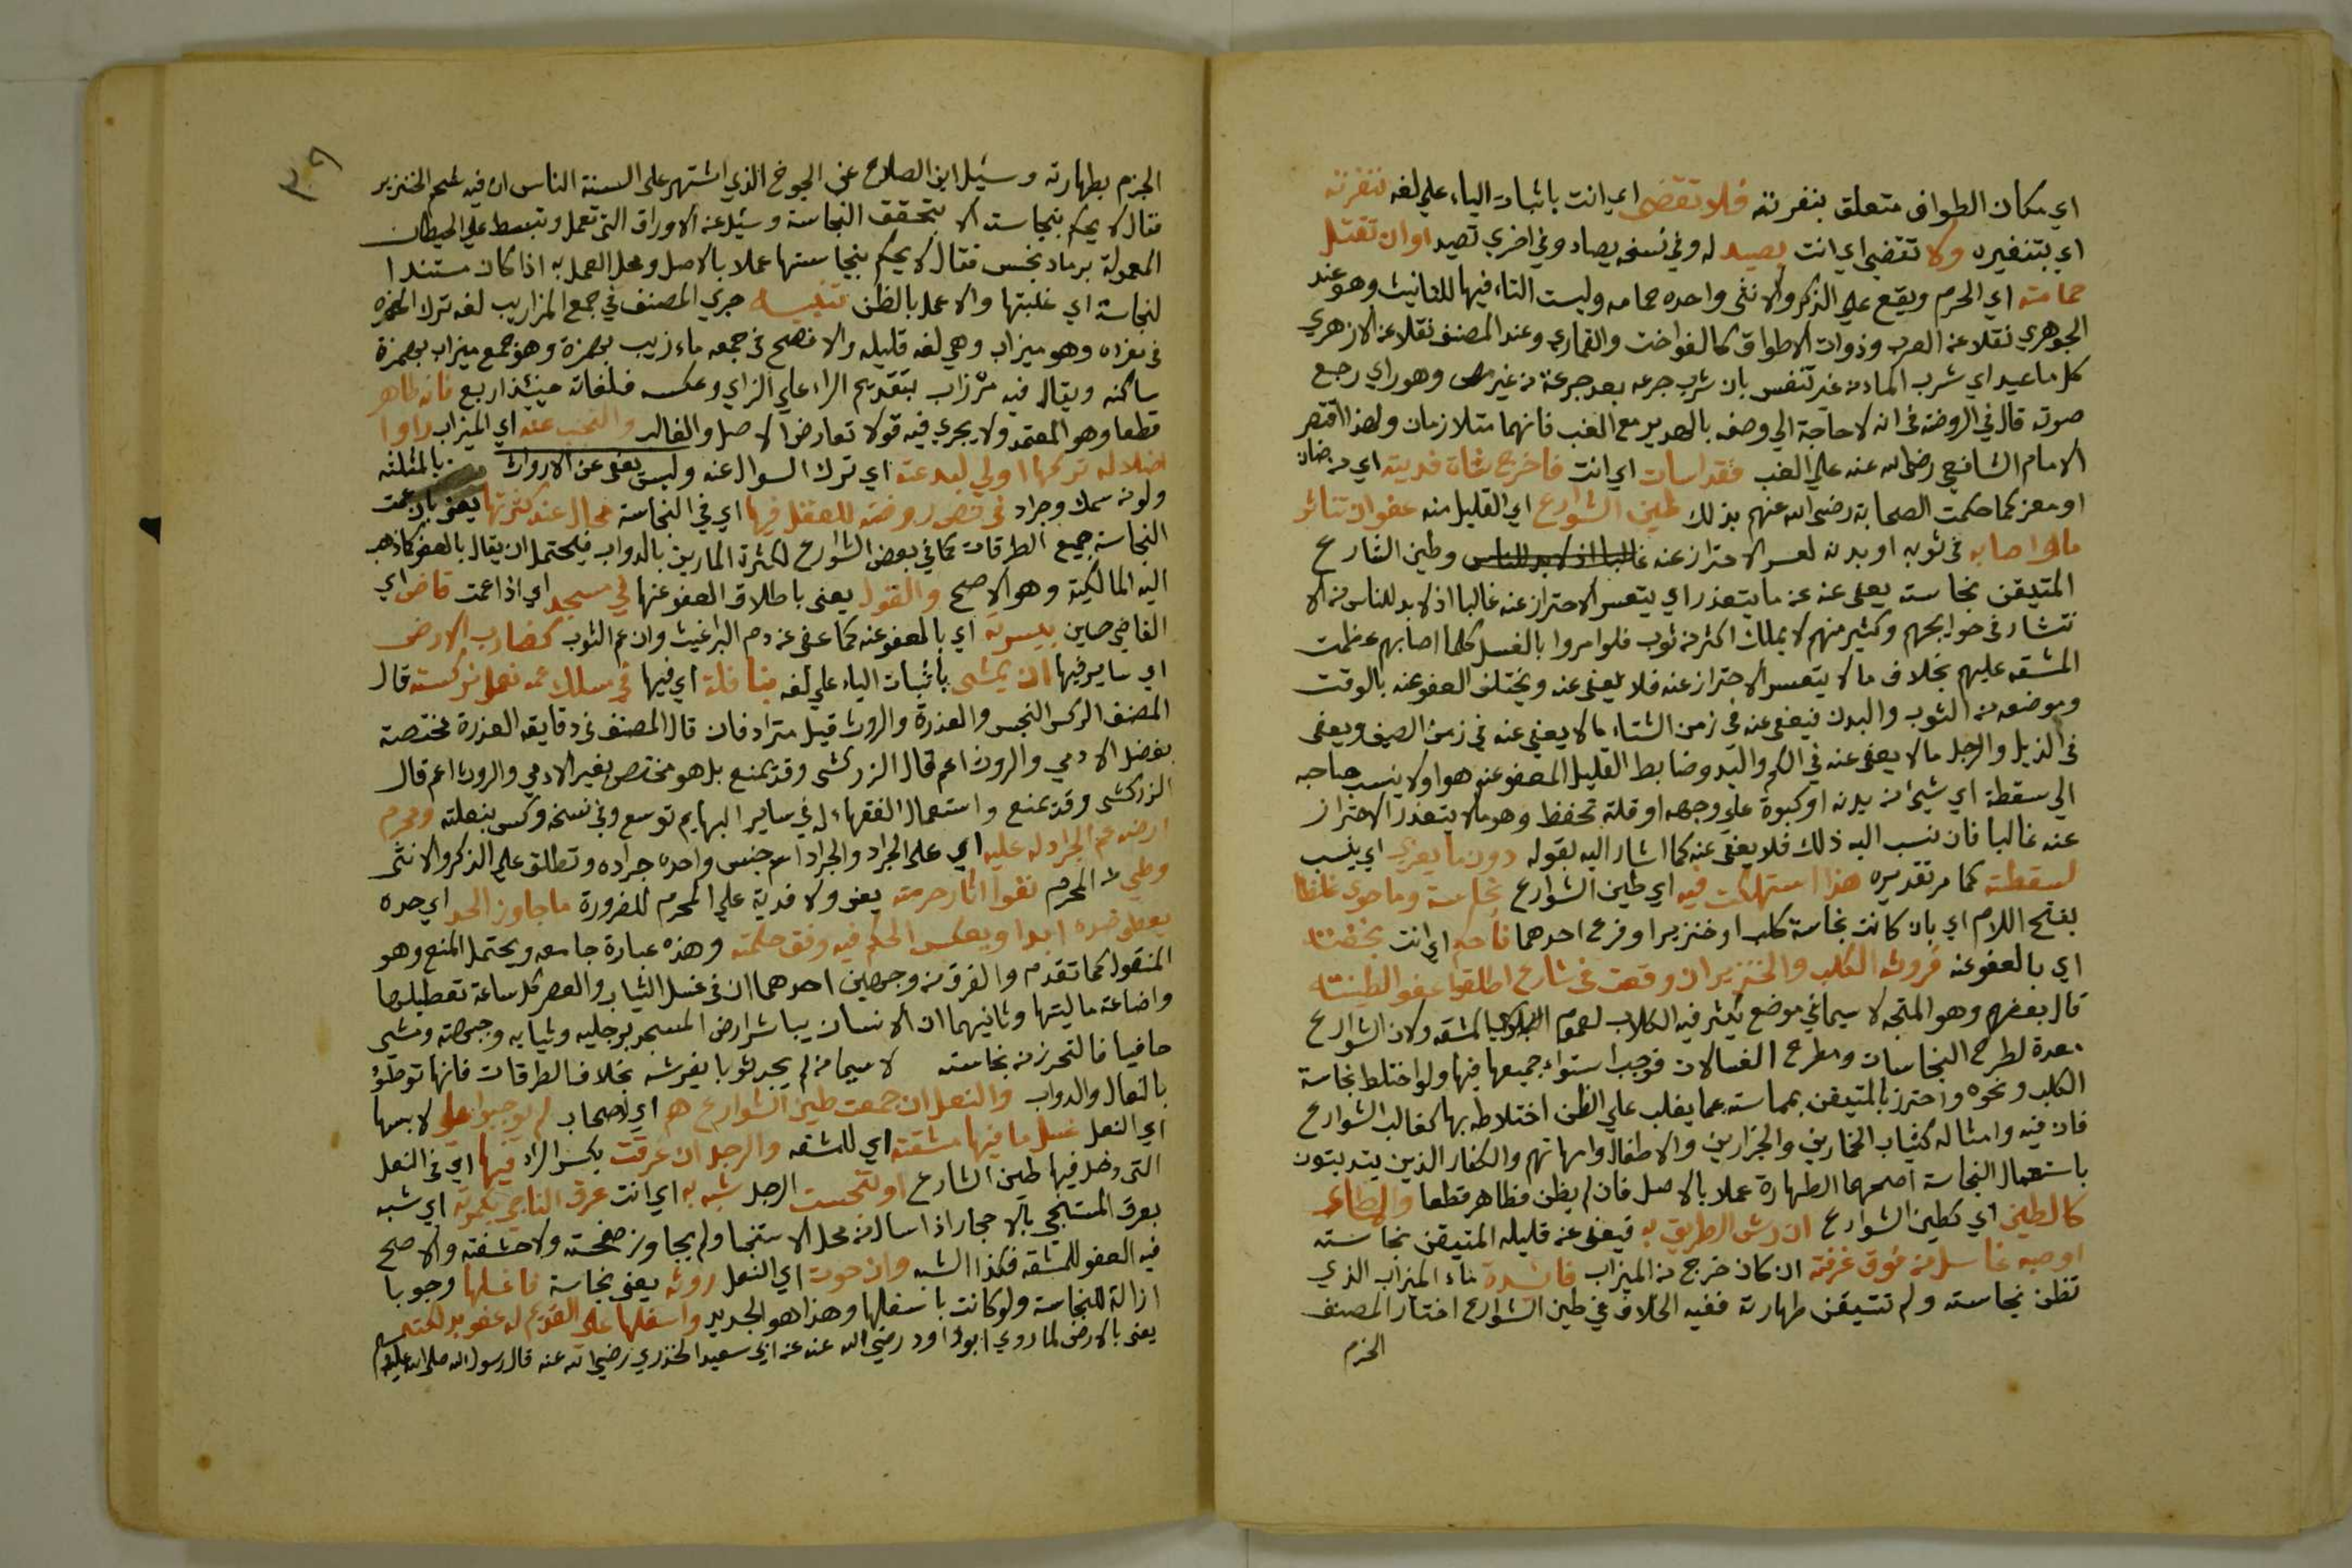 اي مكان الطواف متعلق بنفرته فلا تقضى اي انت باثبات الياء علي لغه نفرته
اي بتنفيره ولا تقضى اي انت بصيد له وفي نسخه يصاد وفي اخري تصيد اوان تقتل
حمامته اي الحرم ويقع علي الذكر والانثى واحده حمامه وليست التاء فيها للتانيث وهو عند
الجوهري نقلا عن العرب وذوات الاطواق كالفواخت والقماري وعند المصنف نقلا عن الازهري
كل ما عب اي شرب الماء من غير تنفس بان شرب جرعه بعد جرعة من غير مص وهو راي رجع
صوته قال في الروضة في انه لا حاجة الي وصفه بالهدير مع العب فانهما متلازمان ولهذا اقتصر
الامام الشافعي رضى الله عنه علي العب فقد اسات اي انت فاخرج شاة فديته اي من ضان
او معز كما حكمت الصحابة رضى الله عنهم بذلك طين الشوارع اي القليل منه عفو ان تناثر
ما اصابه في ثوبه او بدنه لعسر الاحتراز عنه غالبا اذ لا بد للناس وطين الشارع
المتيقن نجاسته يعفى عنه عن ما يتعذر اي يتعسر الاحتراز عنه غالبا اذ لا بد للناس من الا
نتشار في حوايجهم وكثير منهم لا يملك اكثر من ثوب فلو امروا بالغسل كلما اصابهم عظمت
المشقه عليهم بخلاف ما لا يتعسر الاحتراز عنه فلا يعفى عنه ويختلف العفو عنه بالوقت
وموضعه من الثوب والبدن فيعفى عنه في زمن الشتاء ما لا يعفى عنه في زمن الصيف ويعفى
في الذيل والرجل ما لا يعفى عنه في الكم واليد وضابط القليل المعفو عنه هو اولا ينسب صاحبه
الي سقطة اي شيئ من بدنه او كبوة علي وجهه او قلة تحفظ وهو ما لا يتعذر الاحتراز
عنه غالبا فان نسب اليه ذلك فلا يعفى عنه كما اشار اليه بقوله دون ما يعزي اي ينسب
لسقطته كما مر تقديره هذا استهلكت فيه اي طين الشوارع نجاسة وما حوى غلظا
بفتح اللام اي بان كانت نجاسة كلب او خنزير او فرع احدهما فاحكم اي انت بخفته
اي بالعفو عنه فروث الكلب والخنزير ان وقعت في شارع اطلقوا عفوا لطينته
قال بعضهم وهو المتجه لا سيما في موضع يكثر فيه الكلاب لعموم البلوي المشقه ولان الشوارع
معدة لطرح النجاسات ومطرح الغسالات فوجب استواء جميعها فيها ولو اختلط نجاسة
الكلب ونحوه واحترز بالمتيقن نجاسته عما يغلب علي الظن اختلاطه بها كغالب الشوارع
فان فيه وامثاله كثياب الخمارين والجزارين والاطفال وامهاتهم والكفار الذين يتدينون
باستعمال النجاسة اصحهما الطهارة عملا بالاصل فان لم يظن فطاهر قطعا والماء
كالطين اي كطين الشوارع ان رش الطريق به فيعفى عن قليله المتيقن نجاسته
او صبه غاسل من فوق غرفته ان كان خرج من الميزاب فائدة ماء الميزاب الذي
تظن نجاسته ولم تتيقن طهارته ففيه الخلاف في طين الشوارع اختار المصنف
الجزم
٣٠٩
الجزم بطهارته وسئل ابن الصلاح عن الجوخ الذي اشتهر علي السنة الناس ان فيه شحم الخنزير
فقال لا يحكم بنجاسته الا بتحقق النجاسة وسئل عن الاوراق التي تعمل وتبسط علي الحيطان
المعمولة برماد نجس فقال لا يحكم بنجاستها عملا بالاصل ومحل العمل به اذا كان مستندا
لنجاسة اي غلبتها والا عمل بالظن تنبيه جري المصنف في جمع المزاريب لغه ترك الهمزه
في مفرده وهو ميزاب وهي لغه قليله والافصح في جمعه مازيب بهمزة وهو جمع ميزاب بهمزة
ساكنه ويقال فيه مرزاب بتقديم الراء علي الزاي وعكسه فلغاته حينئذ اربع فانه طاهر
قطعا وهو المعتمد ولا يجري فيه قولا تعارض الاصل والغالب والتجنب عنه اي الميزاب راوا
اضلاله تركها اولي لبدعة اي ترك السوال عنه وليس يعفى عن الاروات بالمثلثه
ولو من سمك وجراد في نص روضته للعقل فيها اي في النجاسة مجال عند كثرتها يعنى بان عمت
النجاسة جميع الطرقات كما في بعض الشوارع لكثرة المارين بالدواب فيحتمل ان يقال بالعفو كما ذهب
اليه المالكية وهو الاصح والقول يعنى باطلاق العفو عنها في مسجد اي اذا عمت قاض اي
القاضي حسين بيسرته اي بالعفو عنه كما عفى عن دم البراغيث وان عم الثوب كضارب الارض
اي ساير فيها ان يمشى باثبات الياء علي لغه بنافلة اي فيها في سلك عمه نعل بركسته قال
المصنف الركس النجس والعذرة والروث قيل مترادفان قال المصنف في دقايقه العذرة مختصة
بفضل الادمي والروث اعم قال الزركشى وقد يمنع بل هو مختص بغير الادمي والروث اعم قال
الزركشى وقد يمنع واستعمال الفقهاء له في ساير البهايم توسع وفي نسخه وكس بنعلته ومحرم
ارضه عم الجراد له عليه اي علي الجراد والجراد اسم جنس واحده جراده وتطلق علي الذكر والانثى
وطي المحرم نفوا اثار حرمته يعنى ولا فدية علي المحرم للضرورة ما جاوز الحد اي حده
يعطى ضده ابدا ويعكس الحكم فيه وفق حكمته وهذه عبارة جامعه ويحتمل المنع وهو
المنقول كما تقدم والفرق من وجهين احدهما ان في غسل الثياب والعصر كل ساعة تعطيلها
واضاعة ماليتها وثانيهما ان الانسان يباشر ارض المسجد برجليه وثيابه وجبهته ومشى
حافيا فالتحرز من نجاسته لا سيما من لم يجد ثوبا يفرشه بخلاف الطرقات فانها توطؤ
بالنعال والدواب والنعل ان جمعت طين الشوارع هم اي اصحاب لم يوجبوا علي لابسها
اي النعل غسل ما فيها مشقته اي للمشقه والرجل ان عرقت بكسر الراء فيها اي في النعل
التى دخل فيها طين الشارع او تنجست الرجل شبه به اي انت عرق الناجي بجمرته اي شبه
بعرق المستنجي بالاحجار اذا سال من محل الاستنجا ولم يجاوز صفحته ولا حشفته والاصح
فيه العفو للمشقه فكذا الشبه وان حوت اي النعل روثه يعنى نجاسة فاغسلها وجوبا
ازالة للنجاسة ولو كانت باسفلها وهذا هو الجديد واسفلها علي القديم له عفو بدلكته
يعنى بالارض لما روي ابو داود رضي الله عنه عن ابي سعيد الخدري رضي الله عنه قال رسول الله صلى الله عليه وسلم